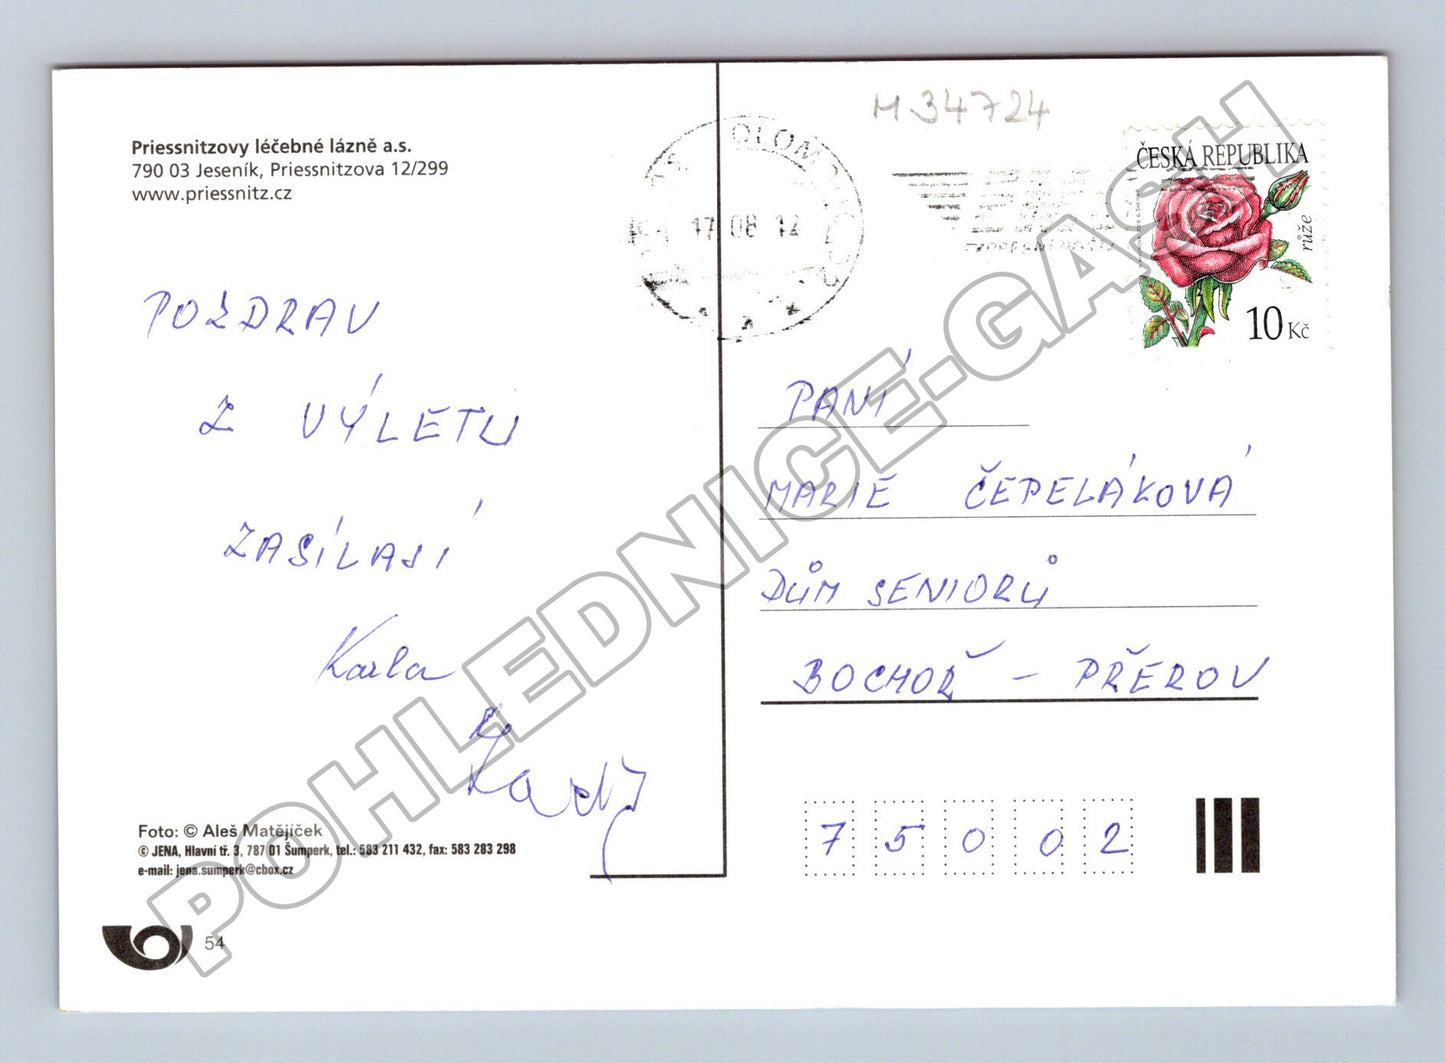 Priessnitzovy léčebné lázně a.s.
790 03 Jeseník, Priessnitzova 12/299
www.priessnitz.cz
POZDRAV
Z VÝLETU
ZASÍLAJÍ
Karla
Foto: © Aleš Matějíček
© JENA, Hlavní tř. 3, 787 01 Šumperk, tel.: 583 211 432, fax: 583 283 298
e-mail: jena.sumperk@cbox.cz
54
M 34724
OLOMOUC 02
17 08 12
ČESKÁ REPUBLIKA
růže
10 Kč
PANÍ
MARIE ČEPELÁKOVÁ
DŮM SENIORŮ
BOCHOŘ - PŘEROV
75002
POHLEDNICE-GASH